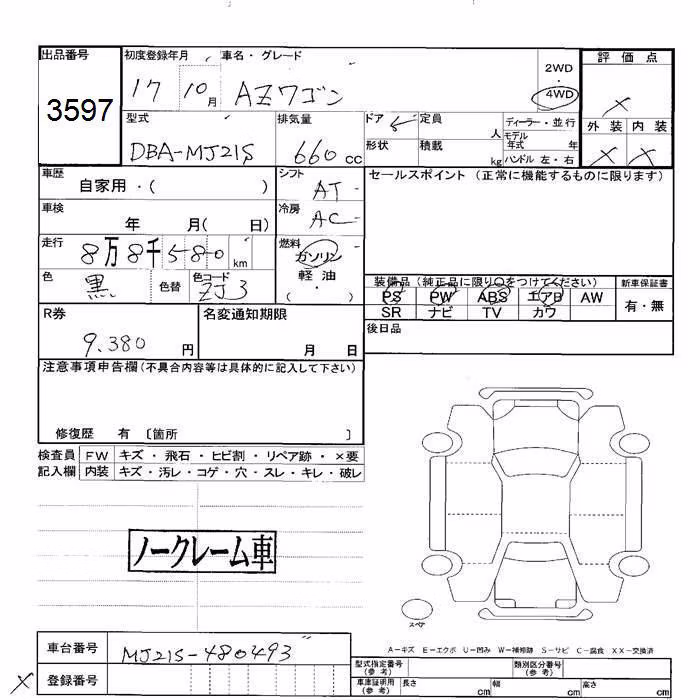 出品番号 初度登録年月 車名・グレード 評価点
3597 17 10月 AZワゴン 2WD・4WD ×
型式 排気量 ドア 定員 人 ディーラー・並行 外装 内装
DBA-MJ21S 660cc 形状 積載 kg モデル年式 年 ハンドル 左・右 × ×
車歴 自家用・( ) シフト AT セールスポイント (正常に機能するものに限ります)
車検 年 月( 日) 冷房 AC
走行 8万8千580km 燃料 ガソリン・軽油・( )
色 黒 色替 色コード ZJ3
装備品(純正品に限り○をつけてください) 新車保証書
PS PW ABS エアB AW 有・無
SR ナビ TV カワ
R券 9.380円 名変通知期限 月 日 後日品
注意事項申告欄(不具合内容等は具体的に記入して下さい)
修復歴 有 〔箇所 〕
検査員 FW キズ・飛石・ヒビ割・リペア跡・×要
記入欄 内装 キズ・汚レ・コゲ・穴・スレ・キレ・破レ
ノークレーム車
スペア
A-キズ E-エクボ U-凹み W-補修跡 S-サビ C-腐食 XX-交換済
車台番号 MJ21S-480493 型式指定番号(参考) 類別区分番号(参考)
× 登録番号 車庫証明用(参考) 長さ cm 幅 cm 高さ cm